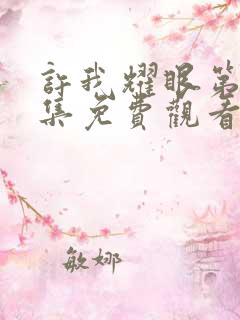 許我耀眼第
集免費觀看
敏娜